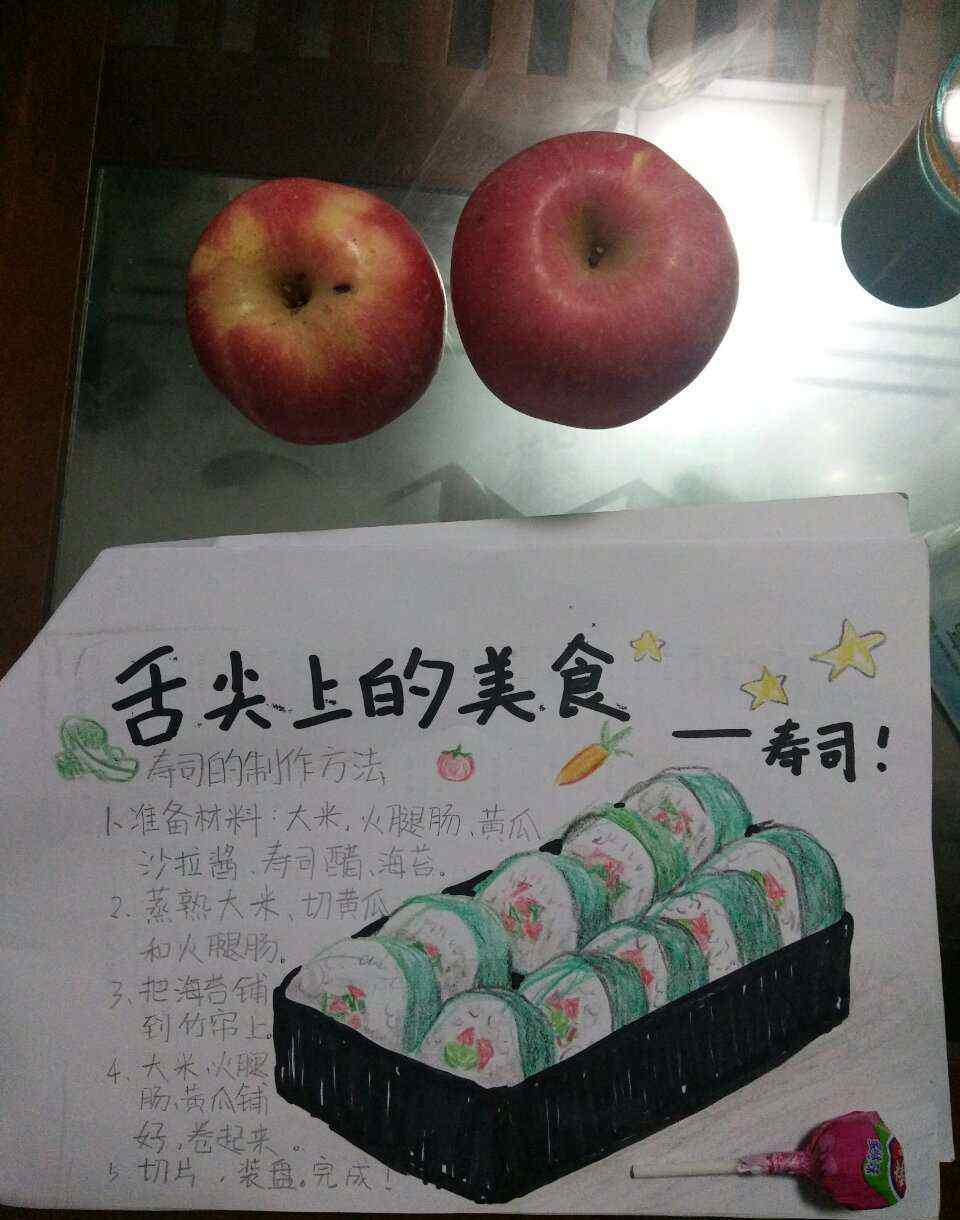 舌尖上的美食
——寿司！
寿司的制作方法
1、准备材料：大米、火腿肠、黄瓜
沙拉酱、寿司醋、海苔。
2、蒸熟大米、切黄瓜
和火腿肠。
3、把海苔铺
到竹帘上。
4、大米、火腿
肠、黄瓜铺
好，卷起来。
5、切片，装盘。完成！